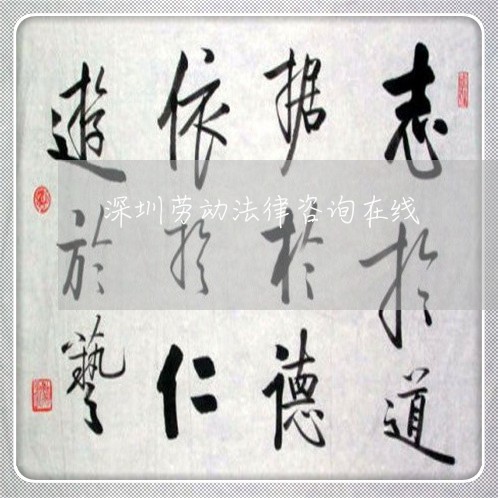 志於道
据於德
依於仁
遊於藝
深圳劳动法律咨询在线